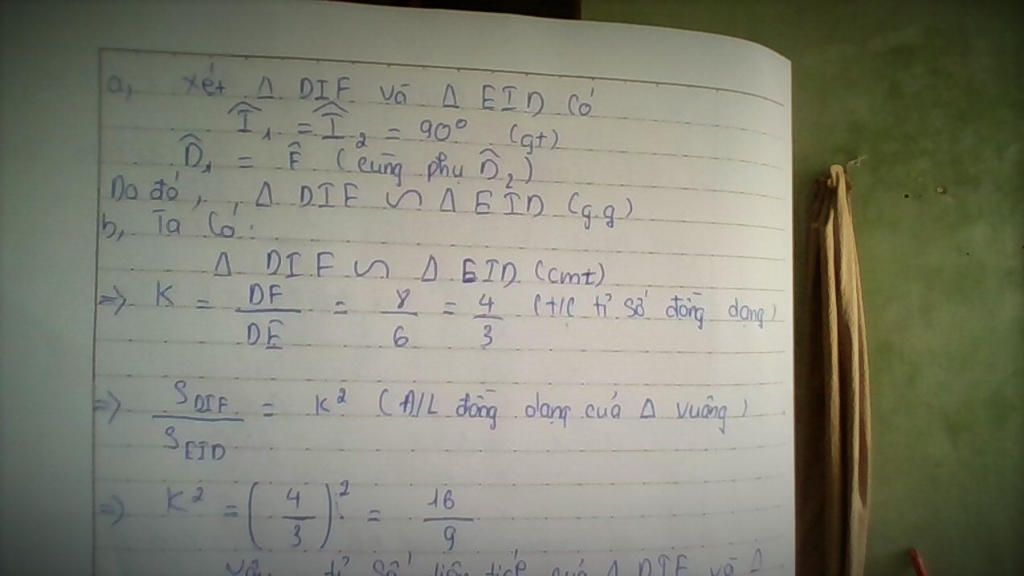 a, xét Δ DIF và Δ EID có
Î₁ = Î₂ = 90° (gt)
D̂₁ = Ê (cùng phụ D̂₂)
Do đó, Δ DIF ∽ Δ EID (g.g)
b, Ta có:
Δ DIF ∽ Δ EID (cmt)
=> K = DF/DE = 8/6 = 4/3 (t/c tỉ số đồng dạng)
=> S_DIF/S_EID = K² (Đ/L đồng dạng của Δ vuông)
=> K² = (4/3)² = 16/9
Vậy tỉ số diện tích của Δ DIF và Δ